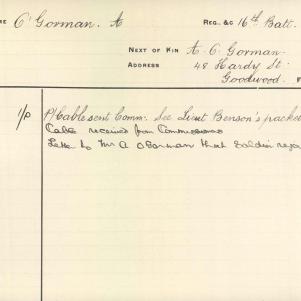 ME O'Gorman. A REG. &C 16th Batt.
NEXT OF KIN A. C. Gorman
ADDRESS 48 Hardy St.
Goodwood. F
1/0 P/Cable sent Comm: See Lieut Benson's packe
Cable received from Commissioner
Letter to Mr A O'Gorman that Soldier repor